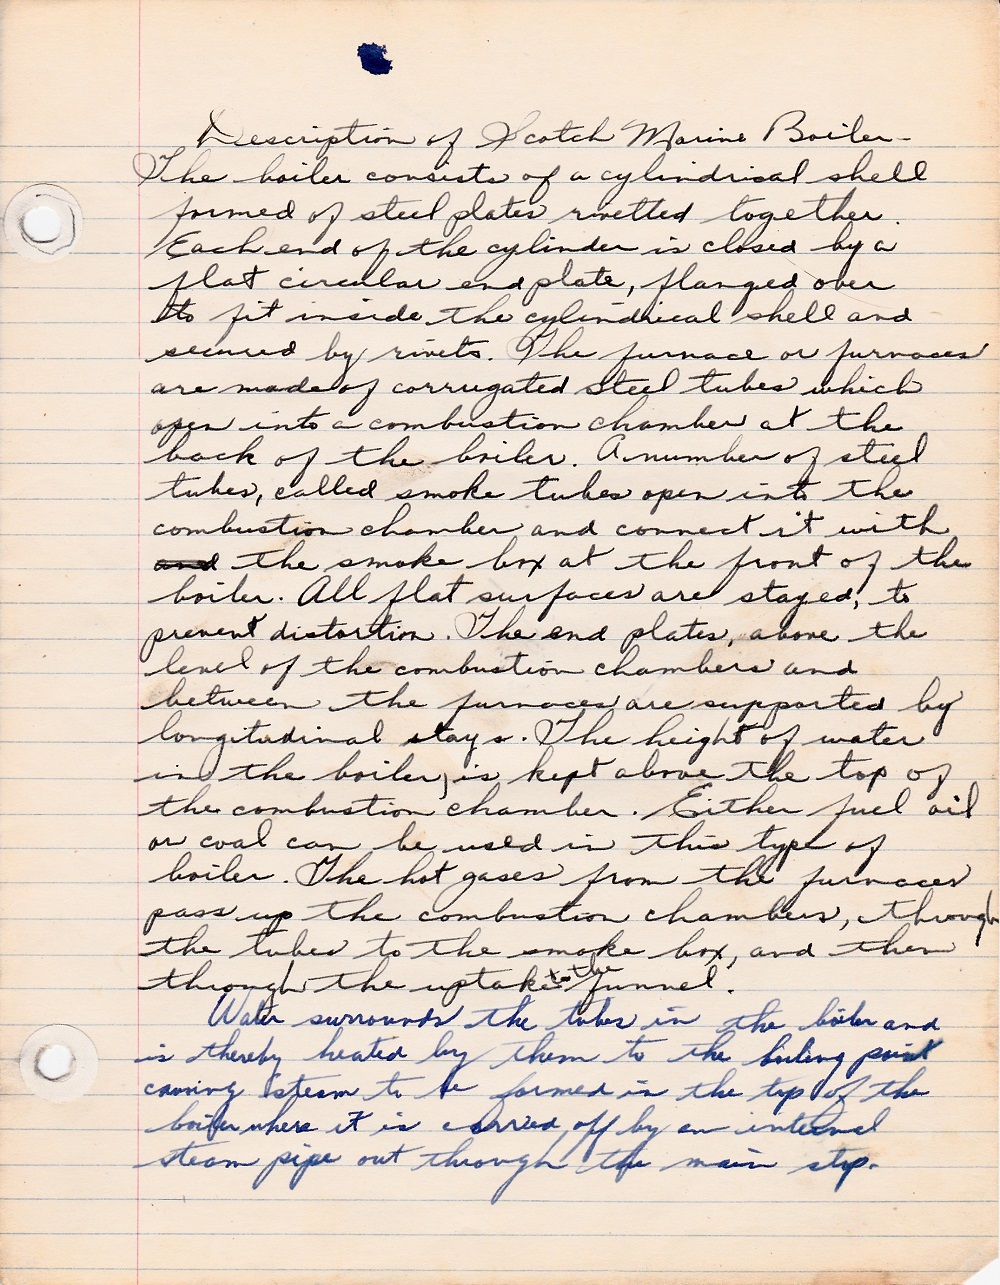 Description of Scotch Marine Boiler-
The boiler consists of a cylindrical shell
formed of steel plates rivetted together.
Each end of the cylinder is closed by a
flat circular end plate, flanged over
to fit inside the cylindrical shell and
secured by rivets. The furnace or furnaces
are made of corrugated steel tubes which
open into a combustion chamber at the
back of the boiler. A number of steel
tubes, called smoke tubes open into the
combustion chamber and connect it with
and the smoke box at the front of the
boiler. All flat surfaces are stayed, to
prevent distortion. The end plates, above the
level of the combustion chambers and
between the furnaces are supported by
longitudinal stays. The height of water
in the boiler, is kept above the top of
the combustion chamber. Either fuel oil
or coal can be used in this type of
boiler. The hot gases from the furnaces
pass up the combustion chambers, through
the tubes to the smoke box, and then
through the uptake to the funnel.
Water surrounds the tubes in the boiler and
is thereby heated by them to the boiling point
causing steam to be formed in the top of the
boiler where it is carried off by an internal
steam pipe out through the main stop.